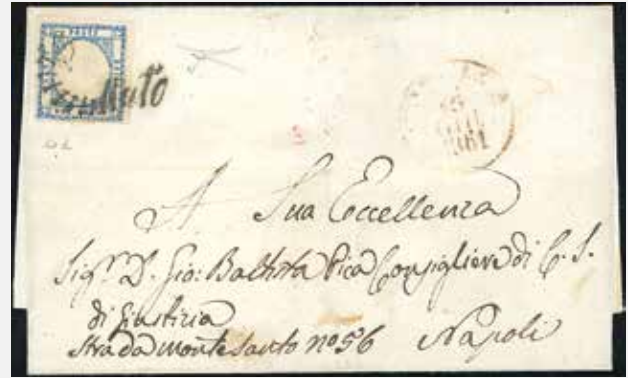 POSTE
Annullato
1861
A Sua Eccellenza
Sigr. D. Gio: Battista Pica Consigliere di C. S.
di Giustizia
Strada Monte Santo no 56 Napoli